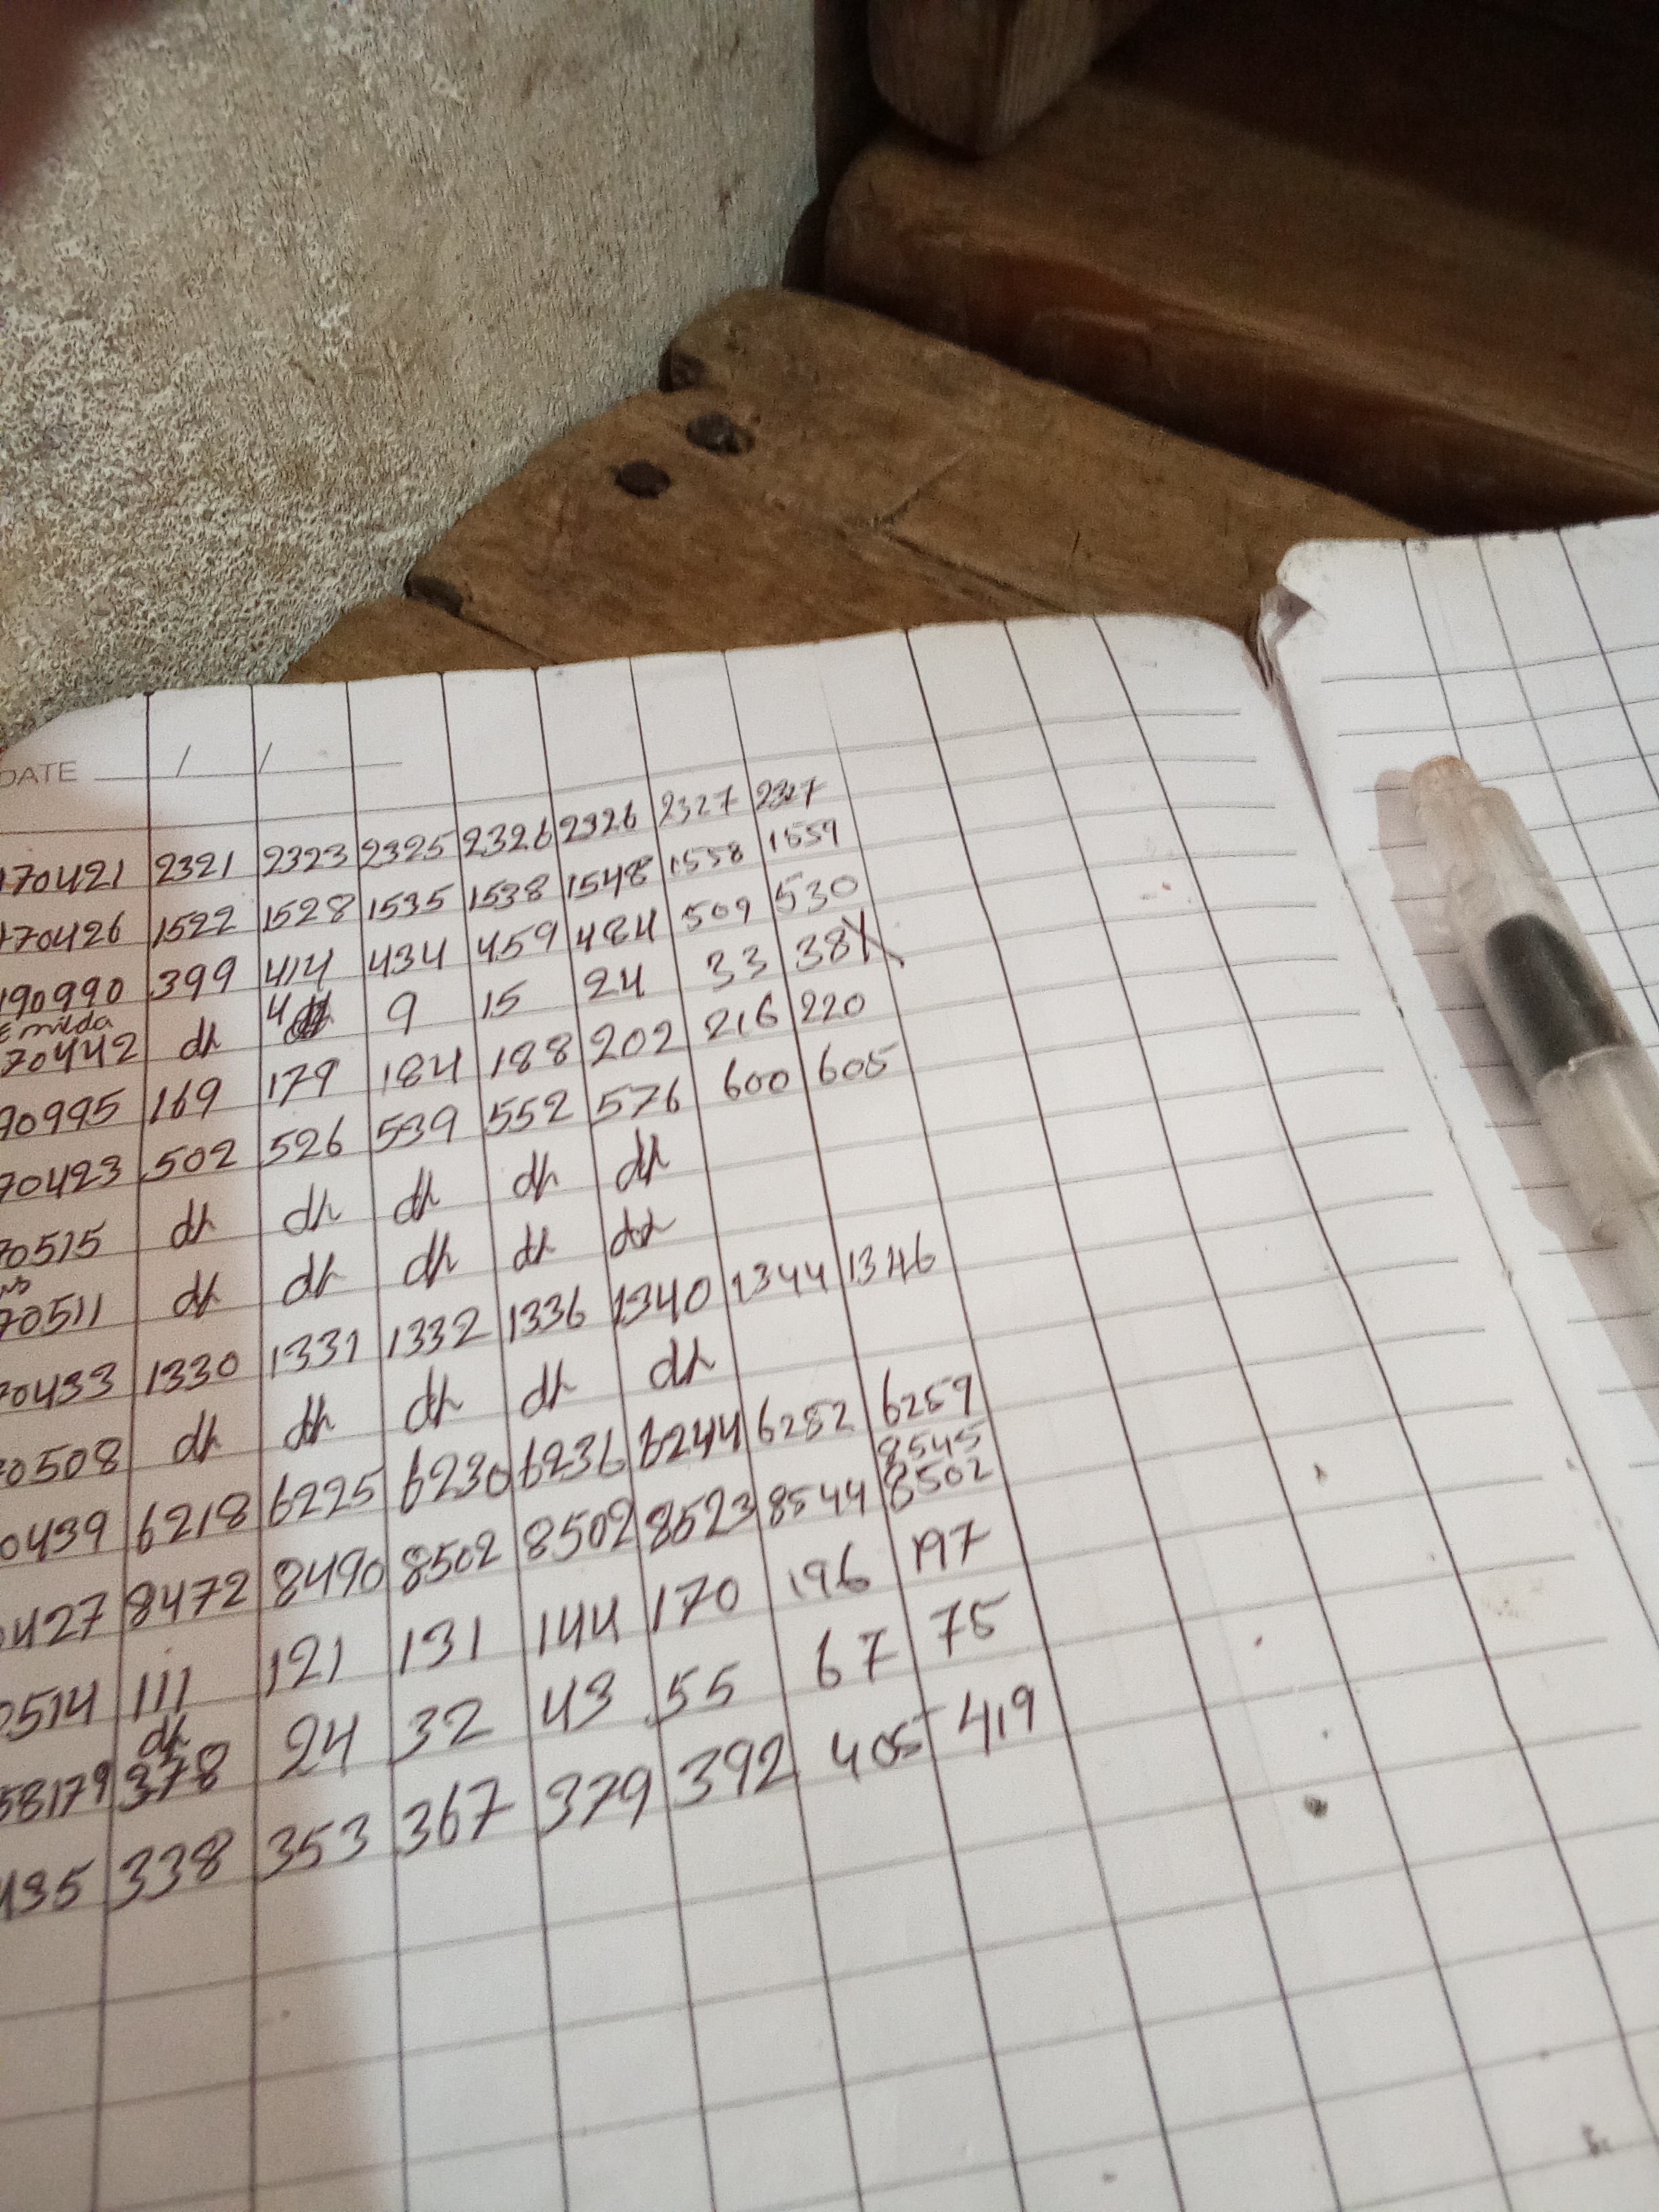 DATE / /
170421 2321 2323 2325 2326 2326 2327 2327
170426 1522 1528 1535 1538 1548 1558 1559
190990 399 414 434 459 484 509 530
Emilda
70442 dh 4 9 15 24 33 38
70995 169 179 184 188 202 216 220
70423 502 526 539 552 576 600 605
70515 dh dh dh dh dh
70511 dh dh dh dh dh
70433 1330 1331 1332 1336 1340 1344 1346
0508 dh dh dh dh dh
0439 6218 6225 6230 6236 6244 6252 6259
8545
427 8472 8490 8502 8502 8523 8544 8502
514 111 121 131 144 170 196 197
dh
58179 378 24 32 43 55 67 75
435 338 353 367 379 392 405 419